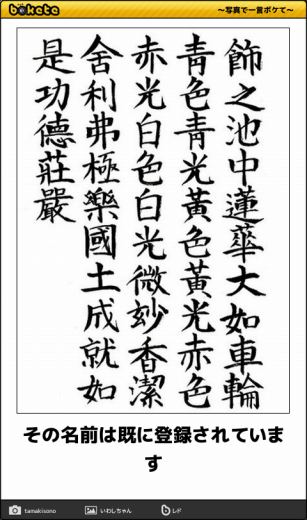 bokete
〜写真で一言ボケて〜
飾之池中蓮華大如車輪
青色青光黃色黃光赤色
赤光白色白光微妙香潔
舍利弗極樂國土成就如
是功德莊嚴
その名前は既に登録されていま
す
tamakisono
いわしちゃん
レド